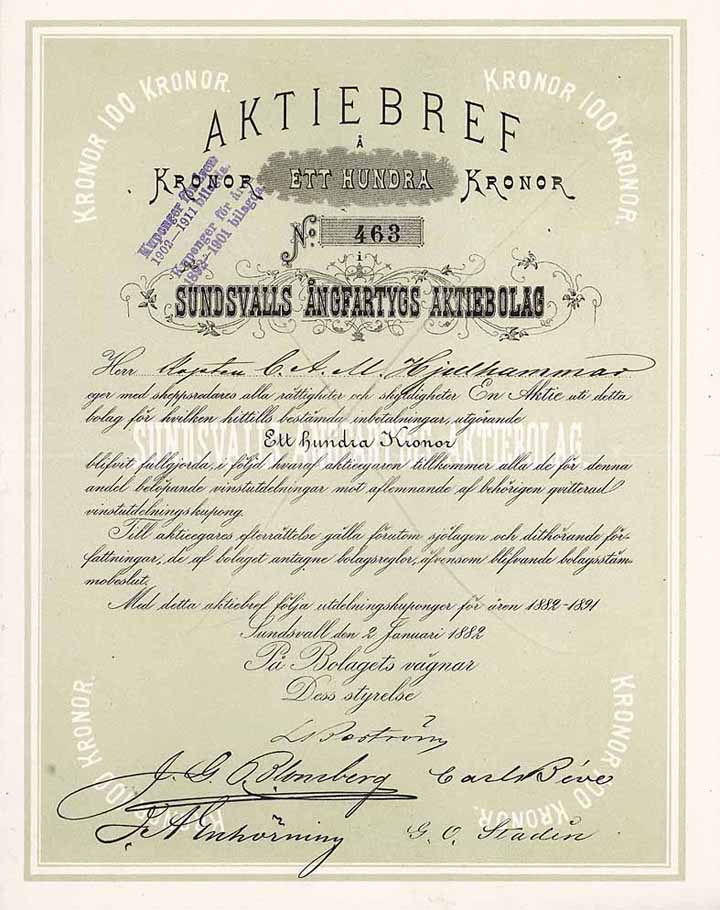 KRONOR 100 KRONOR.
KRONOR 100 KRONOR.
AKTIEBREF
Å
KRONOR ETT HUNDRA KRONOR
Kuponger för åren
1902–1911 bilagda.
Kuponger för åren
1892–1901 bilagda.
No. 463
i
SUNDSVALLS ÅNGFARTYGS AKTIEBOLAG
Herr Kapten C. A. M. Hjelhammar
eger med skeppsredares alla rättigheter och skyldigheter En Aktie uti detta
bolag för hvilken hittills bestämda inbetalningar, utgörande
Ett hundra Kronor
SUNDSVALLS ÅNGFARTYGS AKTIEBOLAG.
blifvit fullgjorda, i följd hvaraf aktieegaren tillkommer alla de för denna
andel belöpande vinstutdelningar mot aflemnande af behörigen qvitterad
vinstutdelningskupong.
Till aktieegares efterrättelse gälla förutom sjölagen och dithörande för-
fattningar, de af bolaget antagne bolagsreglor, äfvensom blifvande bolagsstäm-
mobeslut.
Med detta aktiebref följa utdelningskuponger för åren 1882-1891
Sundsvall den 2 Januari 1882
På Bolagets vägnar
Dess styrelse
J. G. Blomberg
J. A. Enhörning
G. O. Stadin
100 KRONOR.
KRONOR 100 KRONOR.